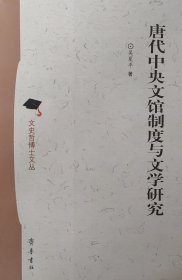 唐代中央文馆制度与文学研究
吴夏平 著
文史哲博士文丛
齐鲁书社